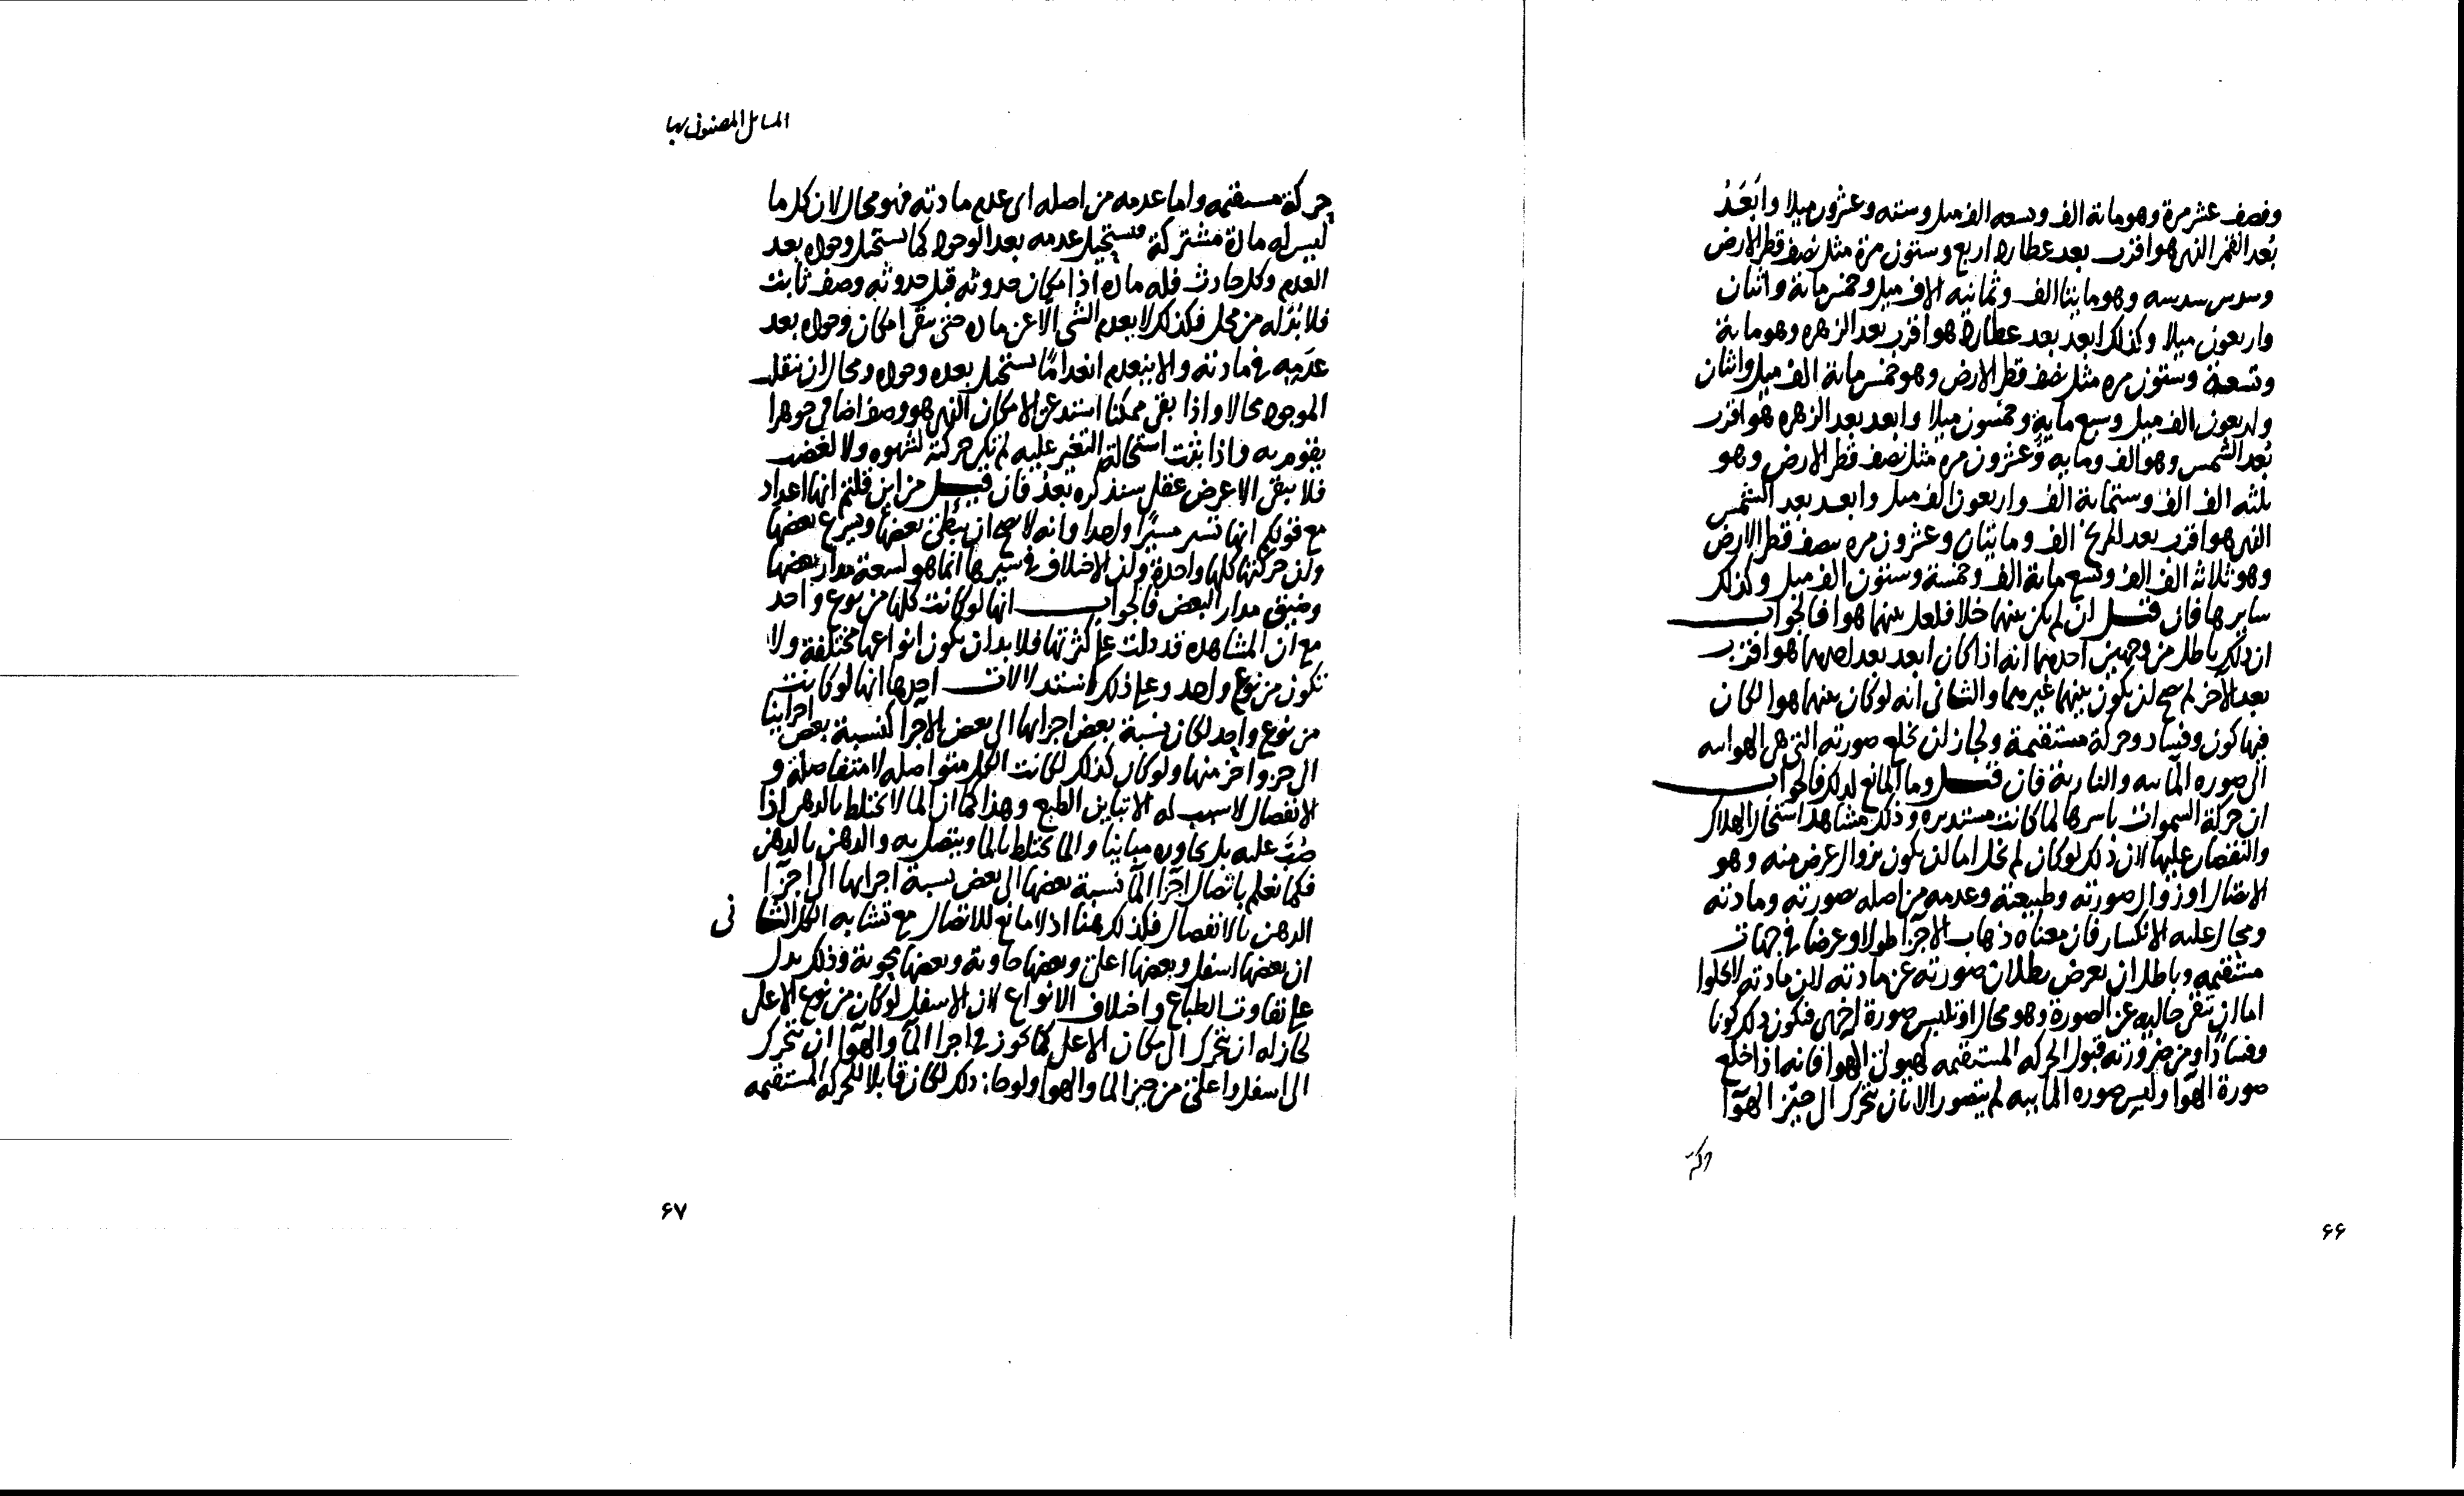 ونصف عشر مرة وهو مائة الف وتسعه الف ميل وسته وعشرون ميلا وابعد
بُعد القمر الذى هو اقرب بعد عطارد اربع وستون مرة مثل نصف قطر الارض
وسدس سدسه وهو مايتا الف وثمانيه الاف ميل وخمس مائة واثنان
واربعون ميلا وكذلك ابعد بعد عطارد هو اقرب بعد الزهره وهو مائة
وتسعة وستون مره مثل نصف قطر الارض وهو خمس مائة الف ميل واثنان
واربعون الف ميل وسبع ماية وخمسون ميلا وابعد بعد الزهره هو اقرب
بُعد الشمس وهو الف ومايه وعشرون مره مثل نصف قطر الارض وهو
ثلثه الف الف وستمائة الف واربعون الف ميل وابعد بعد الشمس
الذى هو اقرب بعد المريخ الف ومايتان وعشرون مره نصف قطر الارض
وهو ثلاثه الف الف وتسع مائة الف وخمسة وستون الف ميل وكذلك
سايرها فان قيل ان لم يكن بينهما خلا فلعل بينهما هوا فالجواب
ان ذلك باطل من وجهين احدهما انه اذا كان ابعد بعد احدهما هو اقرب
بعد الآخر لم يصح ان يكون بينهما غيرهما والثانى انه لو كان بينهما هوا لكان
فيها كون وفساد وحركة مستقيمة ولجاز ان تخلع صورته التى هى الهوائيه
الى صوره المائيه والنارية فان قيل وما المانع لذلك فالجواب
ان حركة السموات باسرها لما كانت مستديره وذلك مشاهد استحال الهلاك
والنقصان عليها لان ذلك لو كان لم يخل اما ان يكون بزوال عرض منه وهو
الاتصال او زوال صورته وطبيعته وعدمه من اصله صورته ومادته
ومحال عليه الانكسار فان معناه ذهاب الاجزآ طولا وعرضا فى جهات
مستقيمه وباطل ان يعرض بطلان صورته عن مادته لان مادته لا تخلوا
اما ان تبقى خاليه عن الصورة وهو محال او تلبس صورة اخرى فتكون ذلك كونا
وفسادًا ومن ضرورته قبول الحركه المستقيمه كهيولى الهوا فانه اذا خلع
صورة الهوآ ولبس صوره المائيه لم يتصور الا بان يتحرك الى حيّز الهوآ
۶۶
المسائل المضنون بها
حركة مستقيمه واما عدمه من اصله اى عدم مادته فهو محال لان كل ما
ليس له مادة مشتركة فيستحيل عدمه بعد الوجود كما يستحيل وجوده بعد
العدم وكل حادث فله ماده اذ امكان حدوثه قبل حدوثه وصف ثابت
فلا بُدّ له من محل فكذلك لا يعدم الشى الا عن ماده حتى يبقى امكان وجوده بعد
عدَمِه فى مادته والا ينعدم انعدامًا يستحيل بعده وجوده ومحال ان ينقلب
الموجود محالا واذا بقى ممكنا استدعى الامكان الذى هو وصف اضافى جوهرا
يقوم به واذا ثبت استحالة التغير عليه لم تكن حركته لشهوه ولا لغضب
فلا يبقى الا عرض عقلى سنذكره بعد فان قيل من اين قلتم انها اعداد
مع قولكم انها تسير مسيرًا واحدا وانه لا يصح ان يبطئ بعضها ويسرع بعضها
وان حركتها كلها واحدة وان الاختلاف فى سيرها انما هو لسعة مدار بعضها
وضيق مدار البعض فالجواب انها لو كانت كلها من نوع واحد
مع ان المشاهده قد دلت على كثرتها فلا بد ان يكون انواعها مختلفة ولا
تكون من نوع واحد وعلى ذلك استدلالات احدها انها لو كانت
من نوع واحد لكان نسبة بعض اجزايها الى بعض الاجزا كنسبة بعض اجزاينا
الى جزو اخر منها ولو كان كذلك لكانت الكل متواصله لا متفاصلة و
الانفصال لا سبب له الا تباين الطبع وهذا كما ان الما لا يختلط بالدهن اذا
صُبَّ عليه بل يجاوره مباينا والما يختلط بالما ويتصل به والدهن بالدهن
فكما نعلم باتصال اجزآ المآ نسبة بعضها الى بعض نسبة اجزايها الى اجزآ
الدهن بالانفصال فكذلك هنا اذ لا مانع للاتصال مع تشابه الكل الثانى
ان بعضها اسفل وبعضها اعلى وبعضها حاوية وبعضها محوية وذلك يدل
على تفاوت الطباع واختلاف الانواع لان الاسفل لو كان من نوع الاعلى
لجاز له ان يتحرك الى مكان الاعلى كما يجوز فى اجزا المآ والهوآ ان تتحرك
الى اسفل واعلى من حيز الما والهوا ولو جاز ذلك لكان قابلا للحركة المستقيمه
۶۷